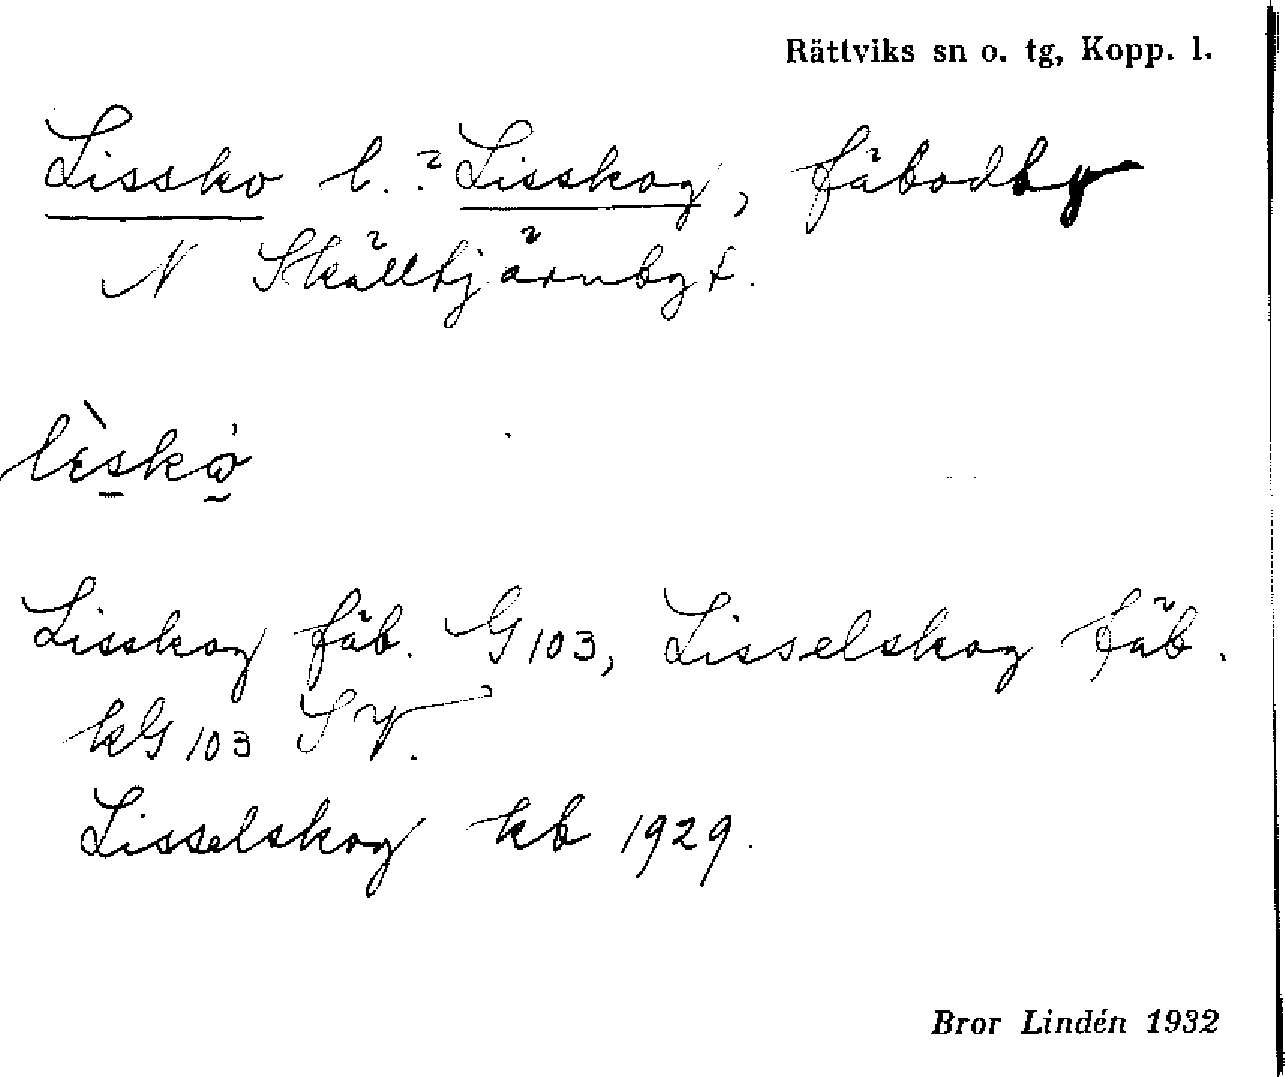 Rättviks sn o. tg, Kopp. l.
Lissko l. ? Lisskog, fäbodby
N Skälltjärnbgt.
lèskò
Lisskog fäb. G103, Lisselskog fäb.
kG103 SV.
Lisselskog kb 1929.
Bror Lindén 1932